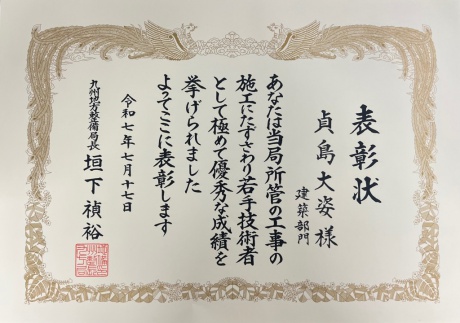 表彰状
建築部門
貞島大姿様
あなたは当局所管の工事の
施工にたずさわり若手技術者
として極めて優秀な成績を
挙げられました
よってここに表彰します
令和七年七月十七日
九州地方整備局長 垣下禎裕